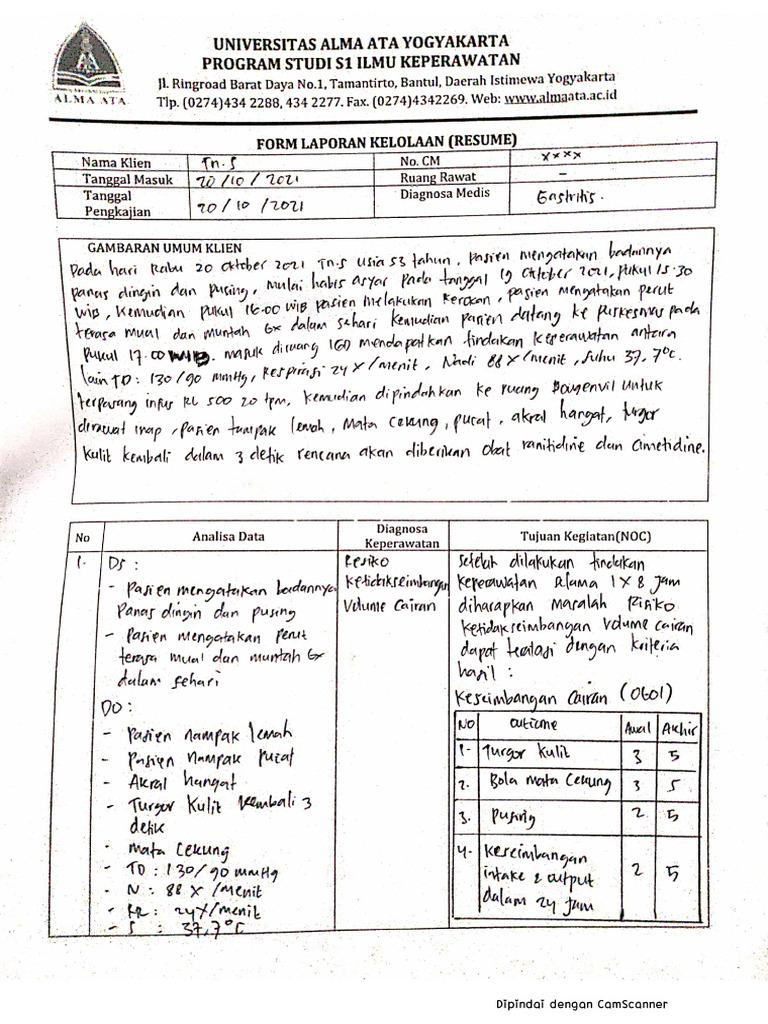 UNIVERSITAS ALMA ATA YOGYAKARTA
PROGRAM STUDI S1 ILMU KEPERAWATAN
Jl. Ringroad Barat Daya No.1, Tamantirto, Bantul, Daerah Istimewa Yogyakarta
Tlp. (0274)434 2288, 434 2277. Fax. (0274)4342269. Web: www.almaata.ac.id
ALMA ATA
FORM LAPORAN KELOLAAN (RESUME)
Nama Klien Tn. S No. CM xxxx
Tanggal Masuk 20/10/2021 Ruang Rawat -
Tanggal Pengkajian 20/10/2021 Diagnosa Medis Gastritis.
GAMBARAN UMUM KLIEN
Pada hari Rabu 20 Oktober 2021 Tn.S usia 53 tahun, pasien mengatakan badannya
panas dingin dan pusing, mulai habis asyar pada tanggal 19 Oktober 2021, pukul 15.30
WIB, kemudian pukul 16.00 WIB pasien melakukan kerokan, pasien mengatakan perut
terasa mual dan muntah 6x dalam sehari kemudian pasien datang ke Puskesmas pada
pukul 17.00 WIB. masuk diruang IGD mendapatkan tindakan keperawatan antara
lain TD: 130/90 mmHg, Respirasi 24x/menit, Nadi 88x/menit, suhu 37,7°C.
terpasang infus RL 500 20 tpm, kemudian dipindahkan ke ruang Bougenvil untuk
dirawat inap, pasien tampak lemah, mata cekung, pucat, akral hangat, turgor
kulit kembali dalam 3 detik rencana akan diberikan obat ranitidine dan cimetidine.
No Analisa Data Diagnosa Keperawatan Tujuan Kegiatan(NOC)
1. DS:
- Pasien mengatakan badannya
panas dingin dan pusing
- Pasien mengatakan perut
terasa mual dan muntah 6x
dalam sehari
DO:
- Pasien nampak lemah
- Pasien nampak pucat
- Akral hangat
- Turgor kulit kembali 3
detik
- mata cekung
- TD: 130/90 mmHg
- N: 88 x/menit
- RR: 24x/menit
- S: 37,7°C
Resiko
ketidakseimbangan
Volume Cairan
Setelah dilakukan tindakan
keperawatan selama 1x8 jam
diharapkan masalah Risiko
ketidakseimbangan volume cairan
dapat teratasi dengan kriteria
hasil:
Keseimbangan Cairan (0601)
NO outcome Awal Akhir
1. Turgor kulit 3 5
2. Bola mata cekung 3 5
3. Pusing 2 5
4. Keseimbangan
intake & output
dalam 24 jam 2 5
Dipindai dengan CamScanner